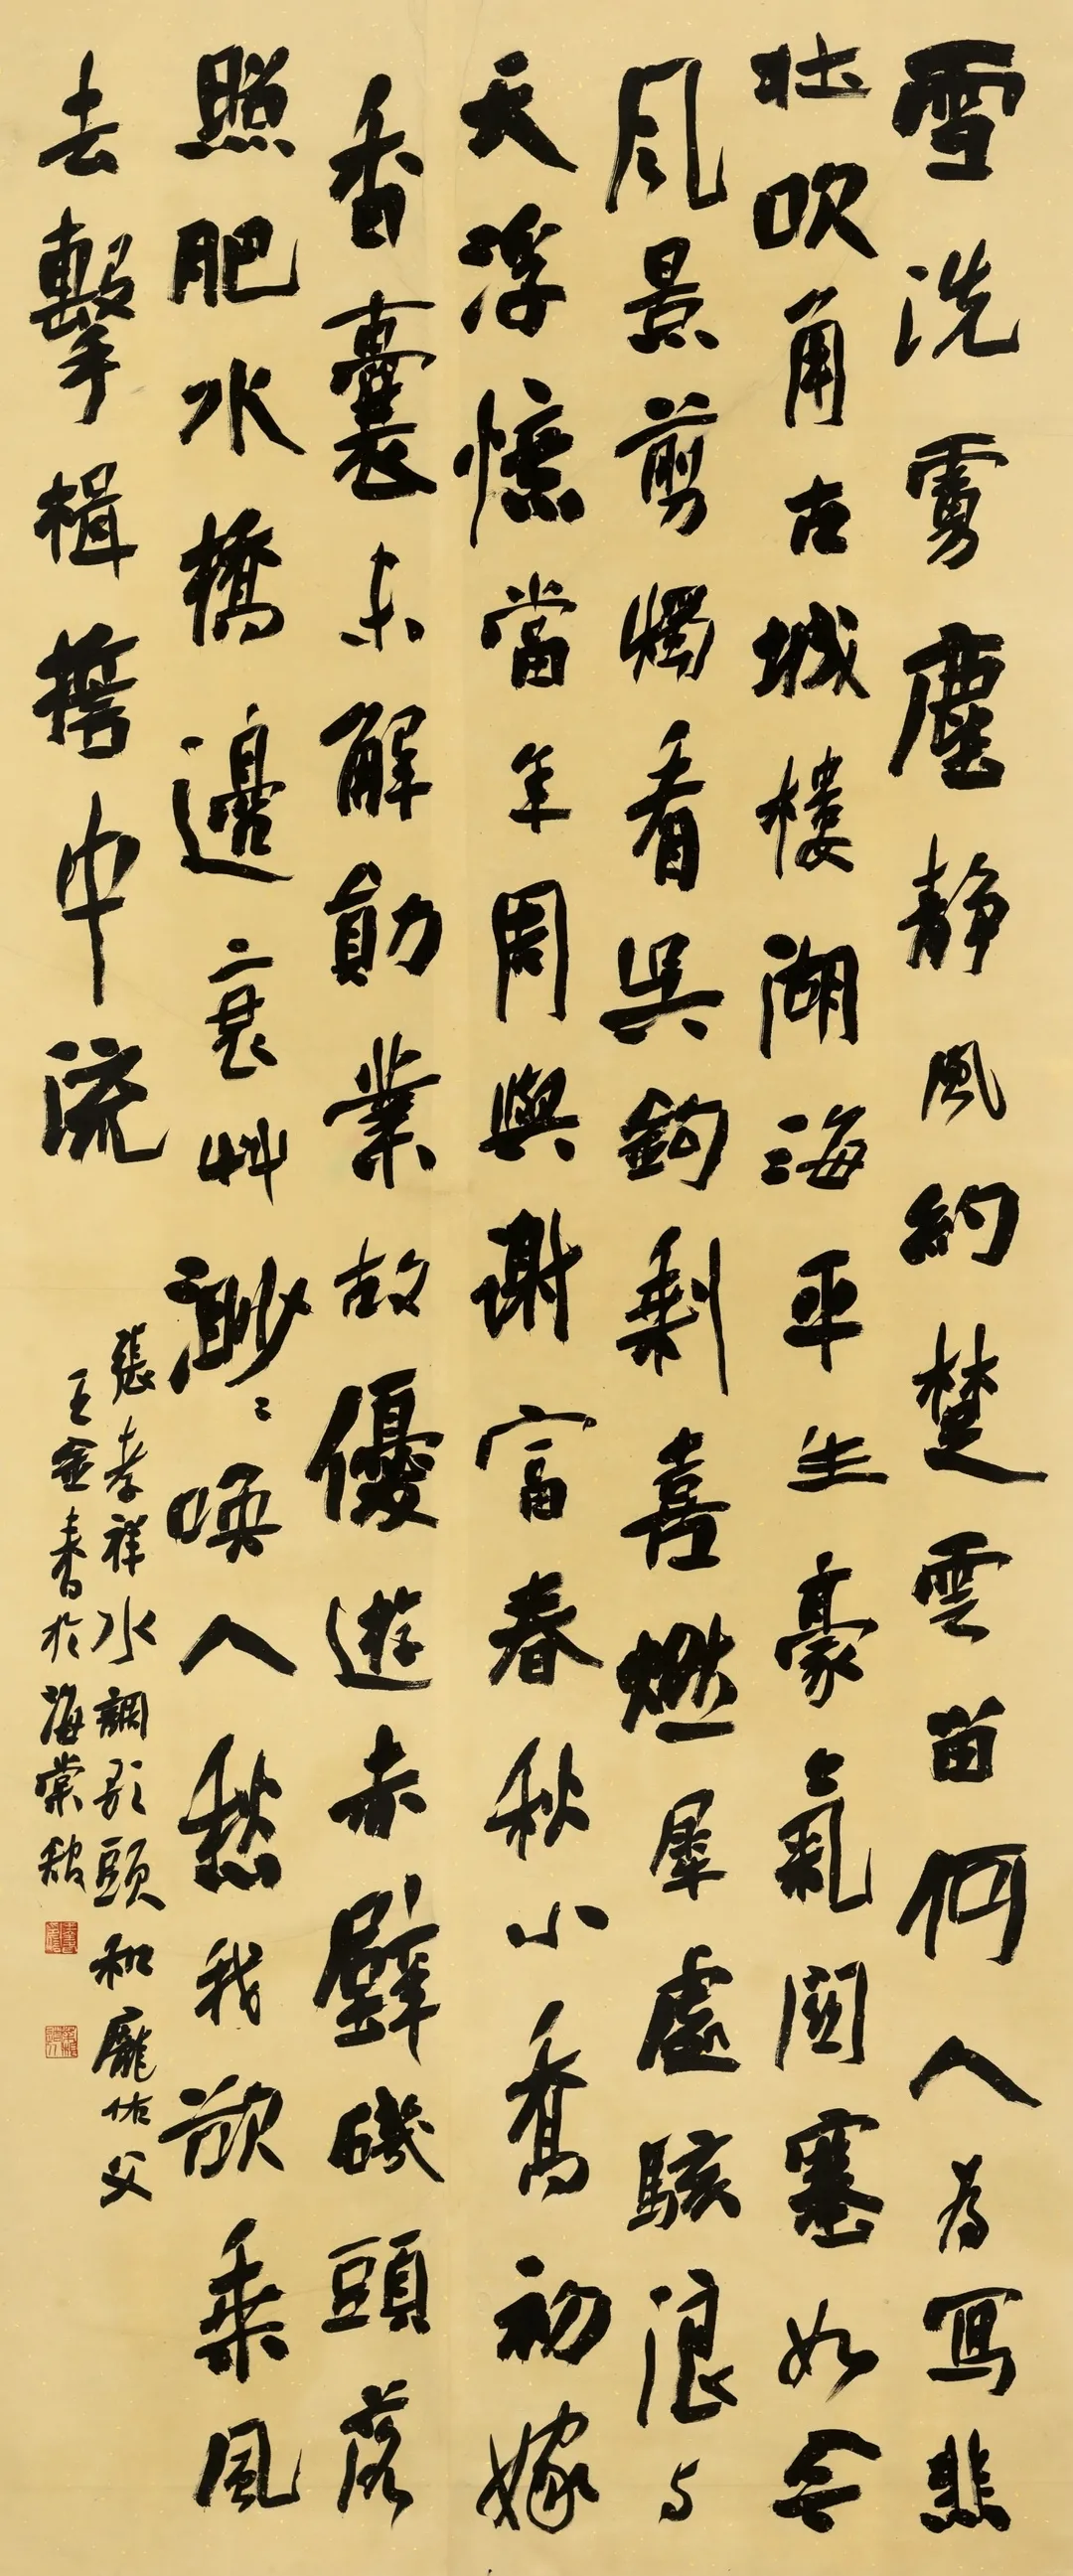 雪洗虜塵靜風約楚雲留何人為寫悲
壯吹角古城樓湖海平生豪氣関塞如今
風景剪燭看吳鉤剩喜燃犀處駭浪与
天浮憶當年周與謝富春秋小喬初嫁
香囊未解勛業故優遊赤壁磯頭落
照肥水橋邊衰艸渺〻喚人愁我欲乘風
去擊楫誓中流
張孝祥水調歌頭和龐佑父
王金書於海棠